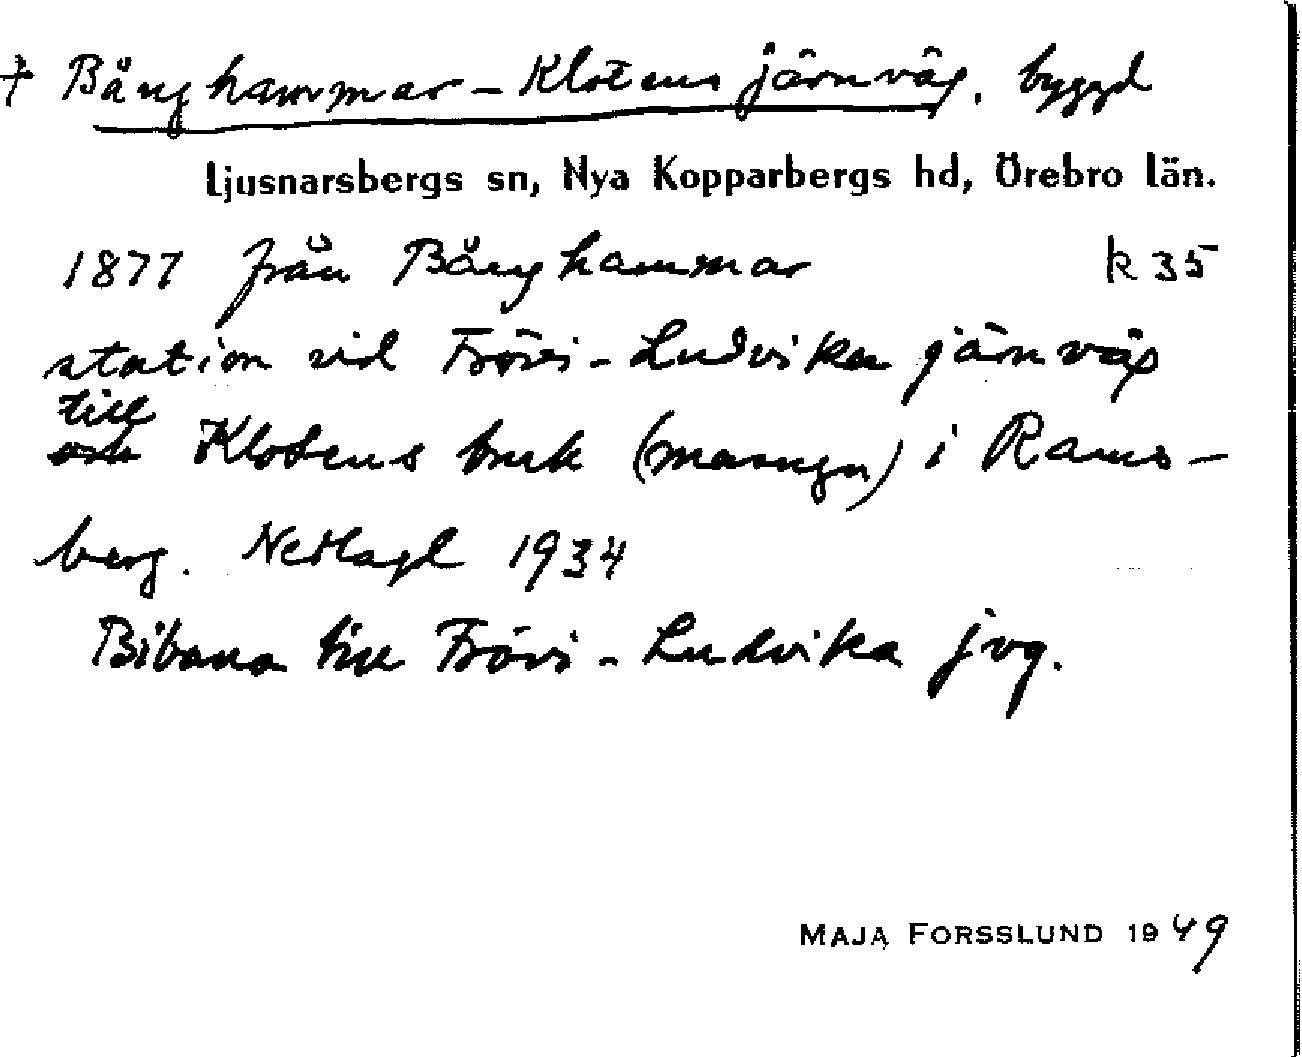 † Bånghammar – Klotens järnväg. byggd
Ljusnarsbergs sn, Nya Kopparbergs hd, Örebro län.
1877 från Bånghammar k 35
station vid Frövi – Ludvika järnväg
till
och Klotens bruk (masugn) i Rams-
berg. Nedlagd 1934
Bibana till Frövi – Ludvika jvg.
MAJA FORSSLUND 1949